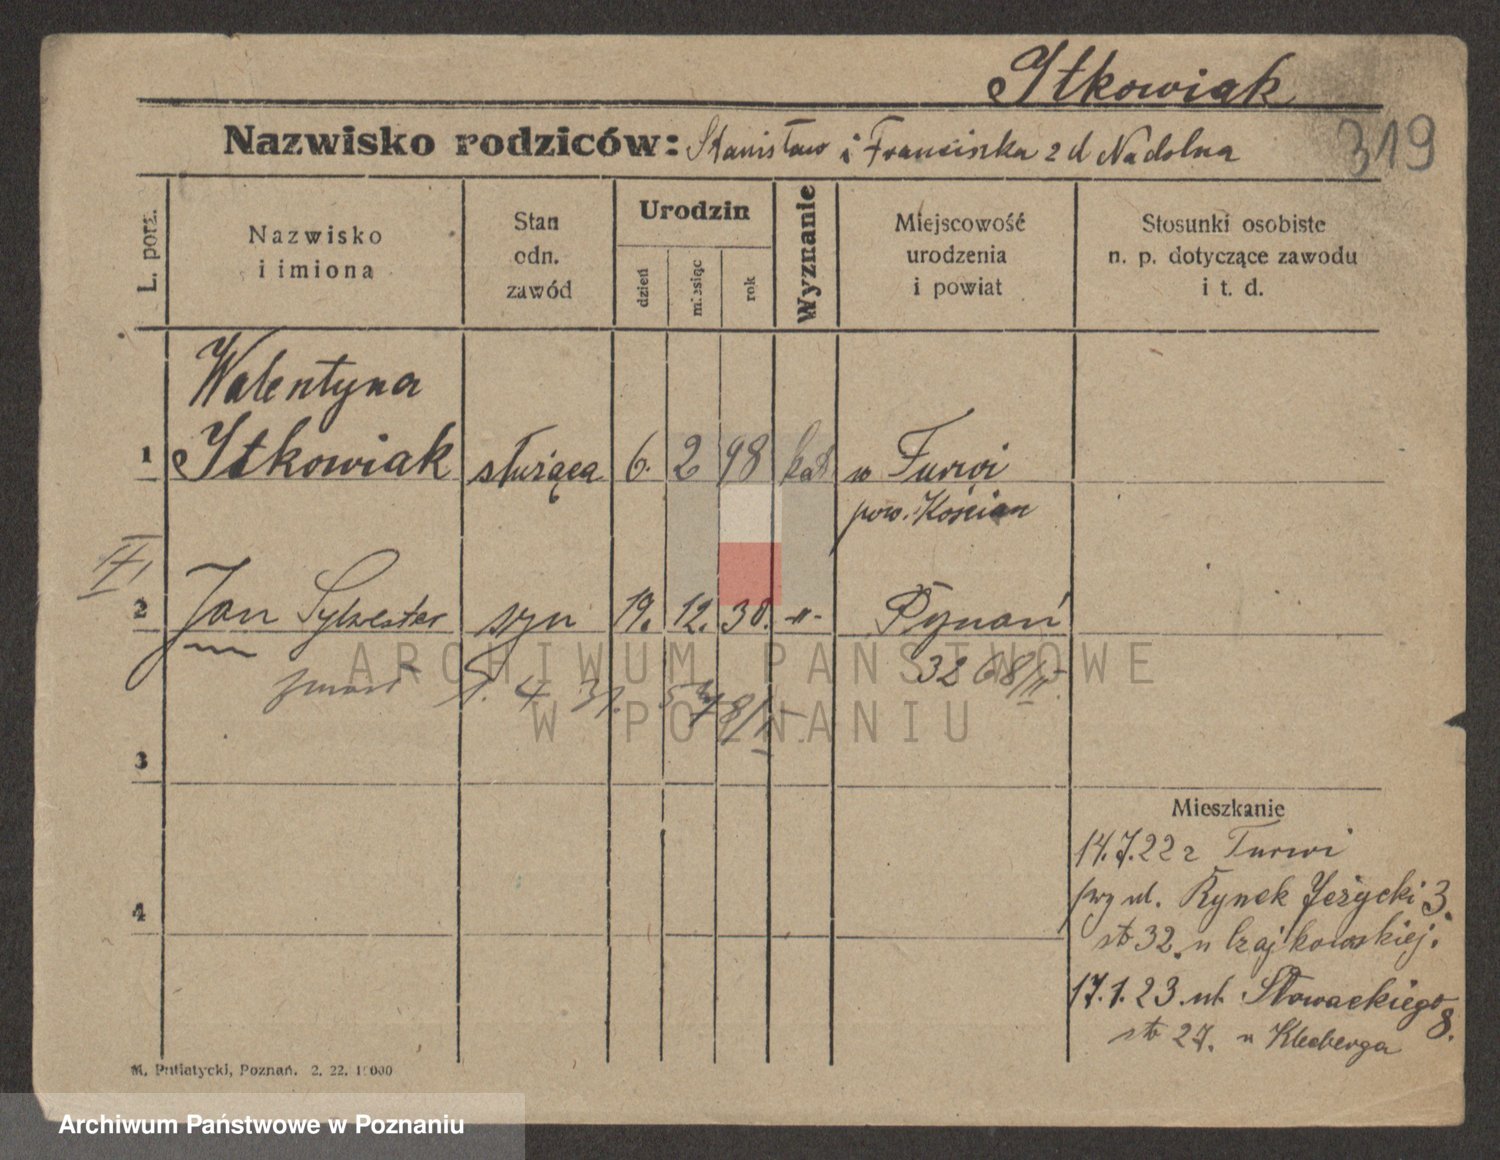 Itkowiak
319
Nazwisko rodziców: Stanisław i Franciszka z d Nadolna
L. porz.
Nazwisko i imiona
Stan odn. zawód
Urodzin
dzień
miesiąc
rok
Wyznanie
Miejscowość urodzenia i powiat
Stosunki osobiste n. p. dotyczące zawodu i t. d.
Walentyna
1 Itkowiak służąca 6. 2 98 kat w Turwi
pow. Kościan
II
2 Jan Sylwester syn 19. 12. 30. -"- Poznań
3268/II
zmarł 9. 4 31.
3
4
Mieszkanie
14.7.22 z Turwi
przy ul. Rynek Jeżycki 3.
str 32. u Czajkowskiej.
17.1.23. ul. Słowackiego 8.
str 27. u Kleeberga
M. Putiatycki, Poznań. 2. 22. 10000
ARCHIWUM PAŃSTWOWE
W POZNANIU
Archiwum Państwowe w Poznaniu